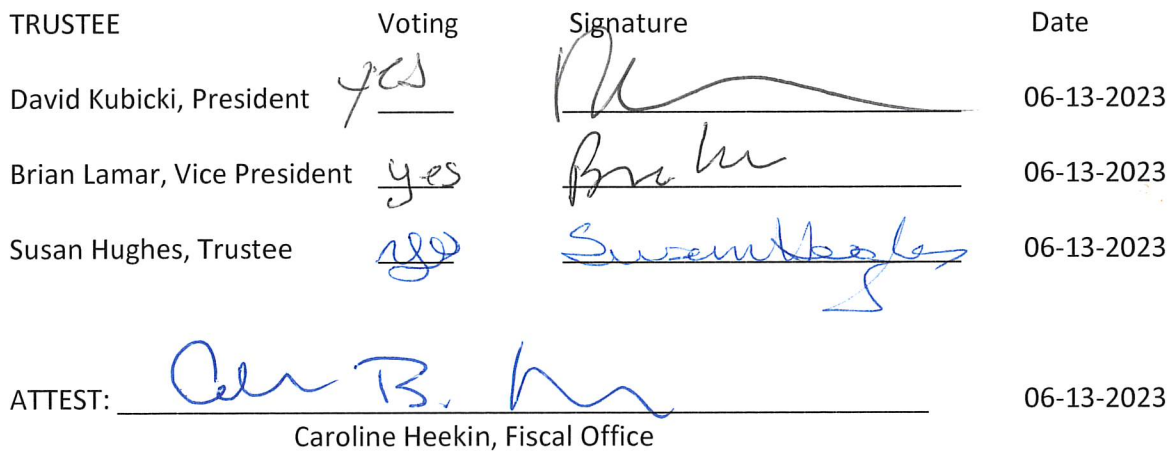 TRUSTEE Voting Signature Date
David Kubicki, President yes 06-13-2023
Brian Lamar, Vice President yes 06-13-2023
Susan Hughes, Trustee yes Susan Hughes 06-13-2023
ATTEST: B. 06-13-2023
Caroline Heekin, Fiscal Office